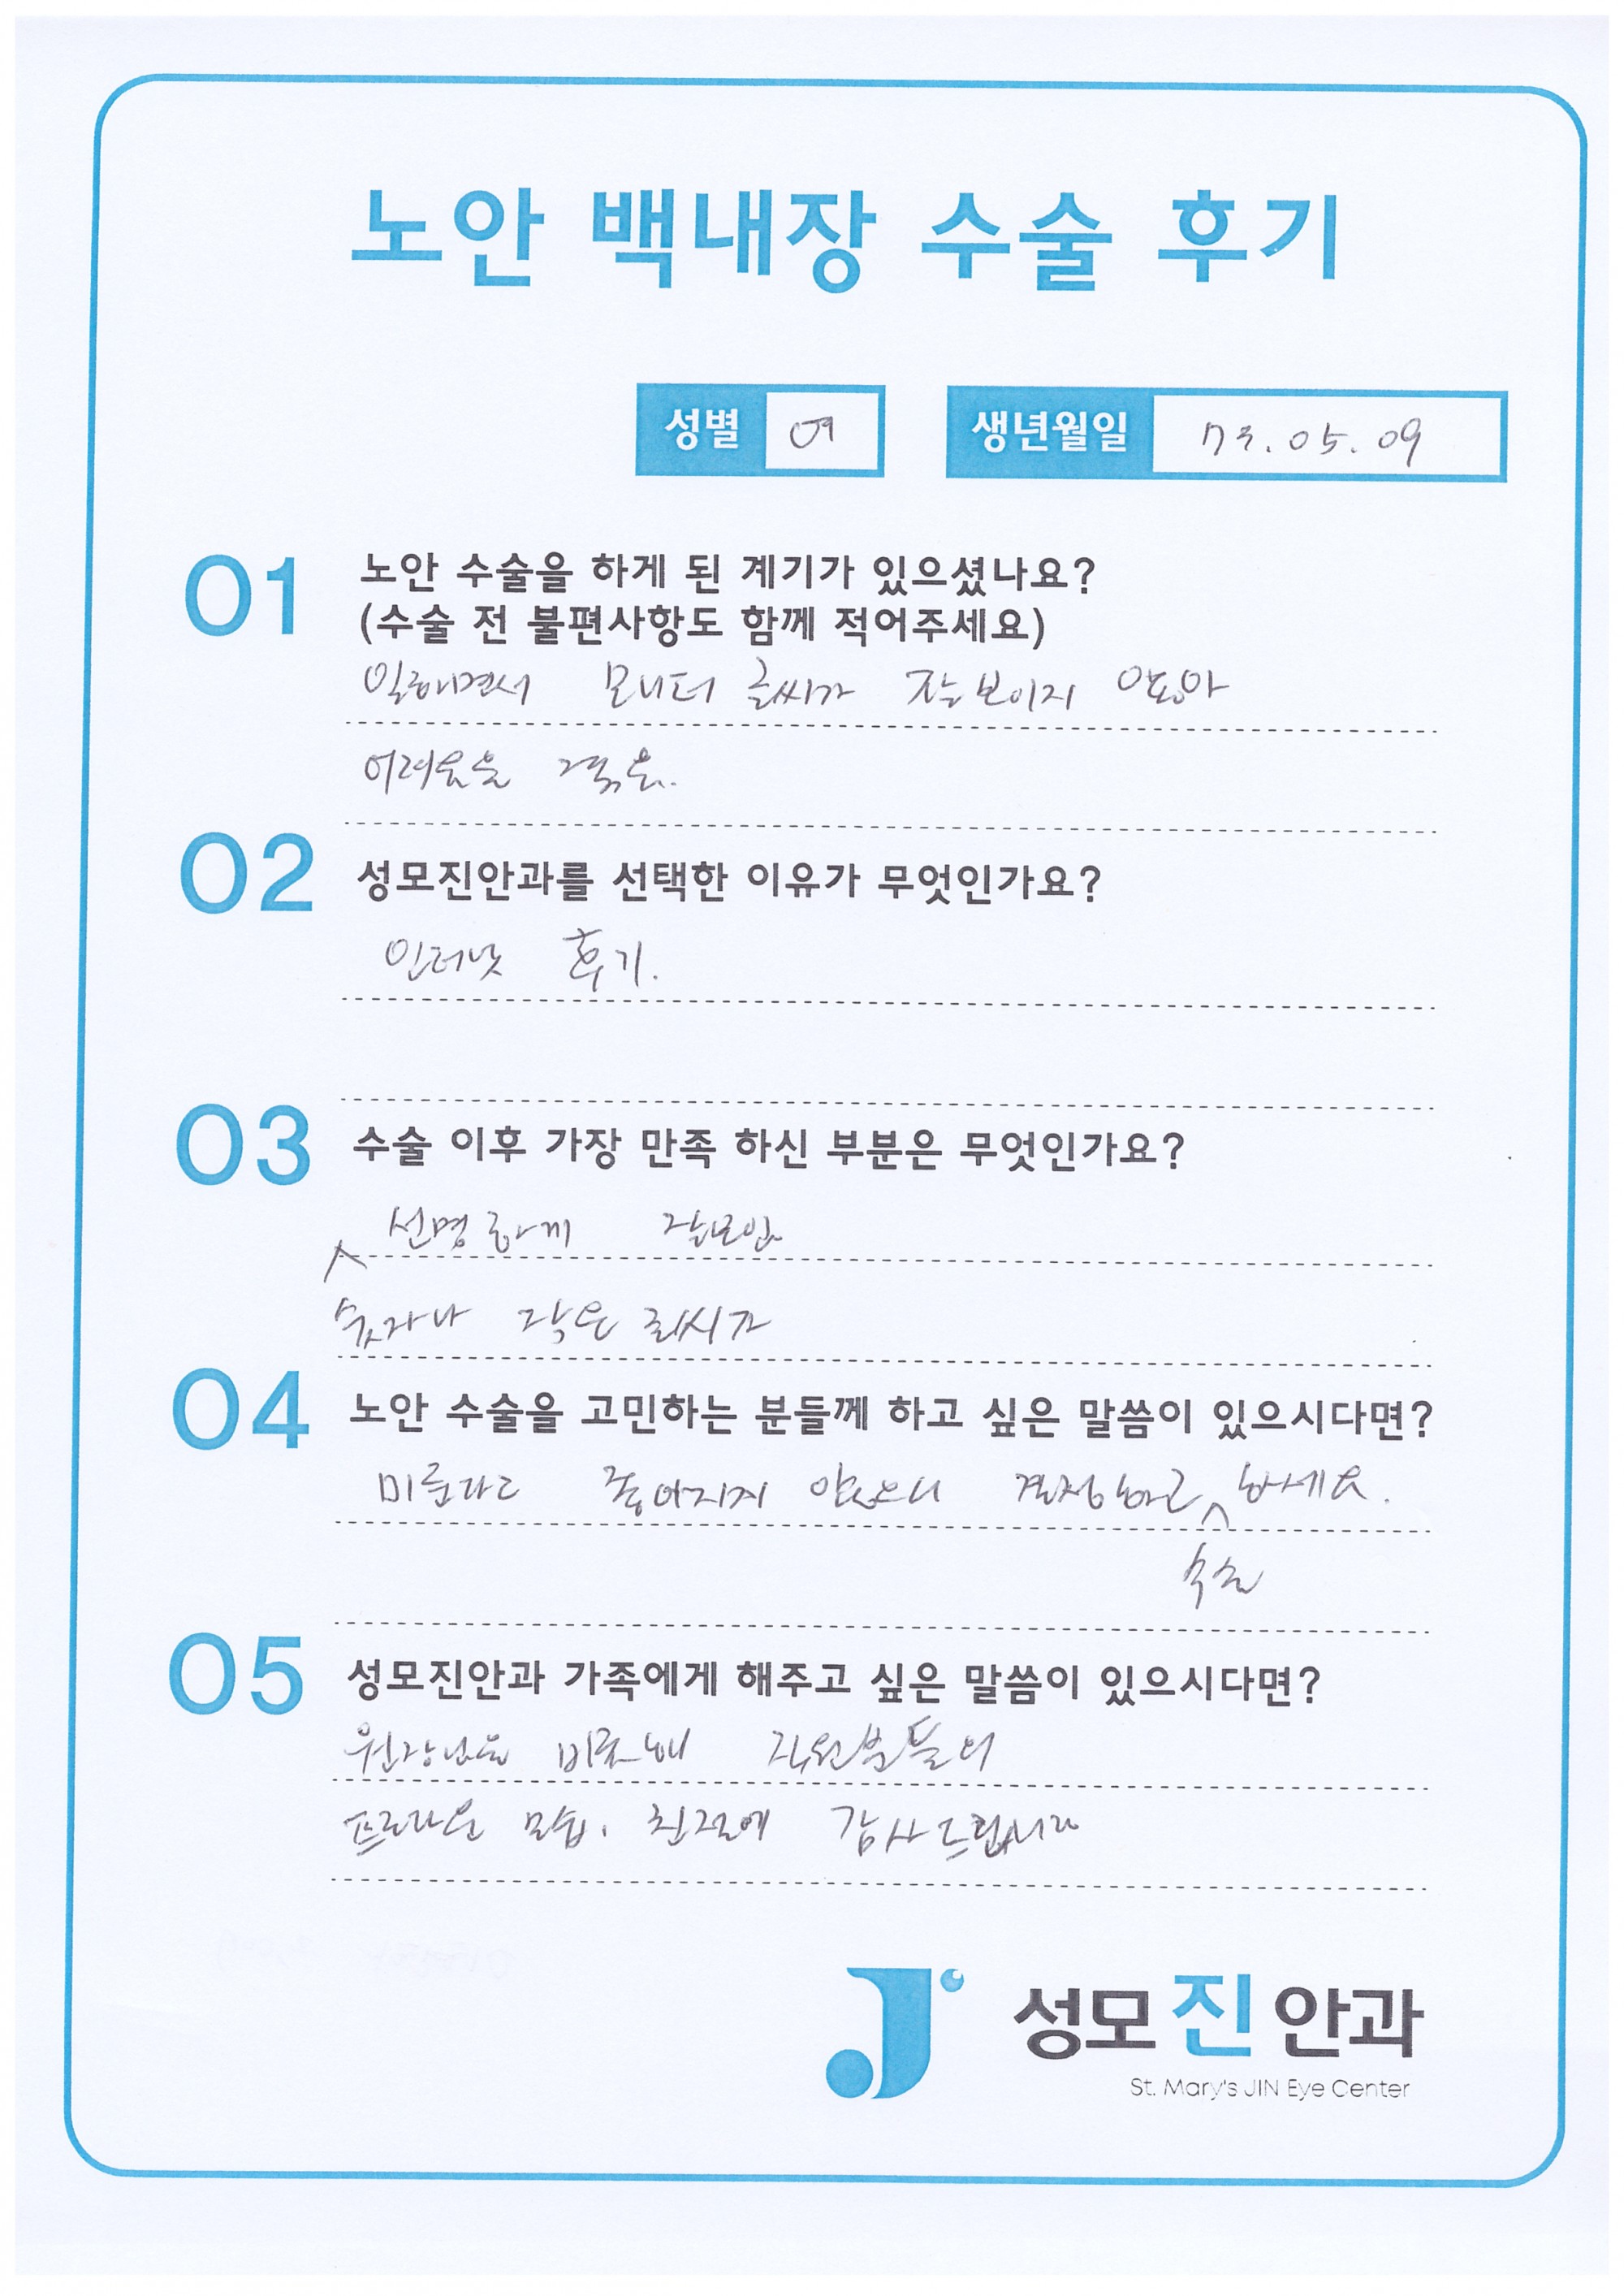 노안 백내장 수술 후기
성별 여 생년월일 73.05.09
01 노안 수술을 하게 된 계기가 있으셨나요?
(수술 전 불편사항도 함께 적어주세요)
일하면서 모니터 글씨가 잘 보이지 않아
어려움을 겪음.
02 성모진안과를 선택한 이유가 무엇인가요?
인터넷 후기.
03 수술 이후 가장 만족 하신 부분은 무엇인가요?
선명하게 잘보임
숫자나 작은 글씨가
04 노안 수술을 고민하는 분들께 하고 싶은 말씀이 있으시다면?
미룬다고 좋아지지 않으니 결정하고 하세요.
수술
05 성모진안과 가족에게 해주고 싶은 말씀이 있으시다면?
원장님을 비롯해 직원분들의
프로다운 모습, 친절에 감사드립니다
J 성모진안과
St. Mary's JIN Eye Center